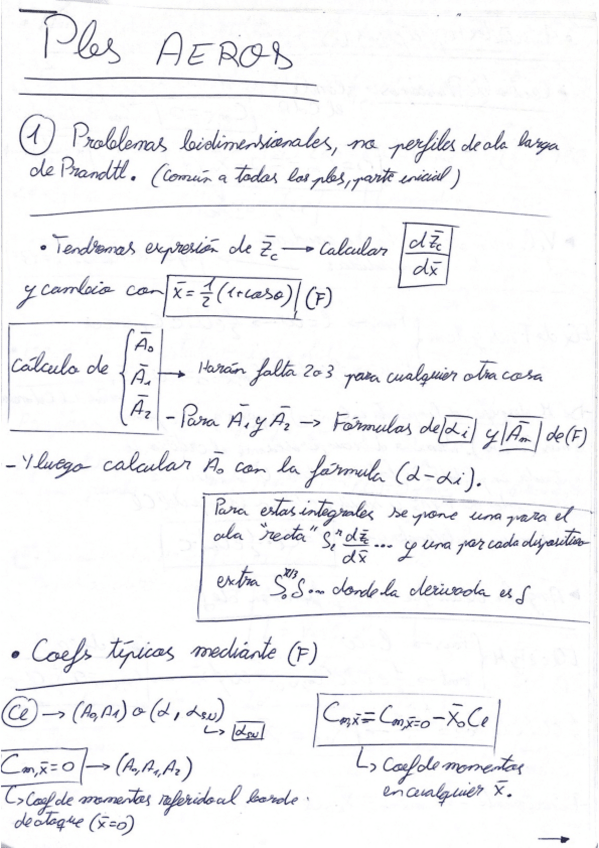 Pbs AEROS
① Problemas bidimensionales, no perfiles de ala larga
de Prandtl. (Común a todos los pbs, parte inicial)
• Tendremos expresión de z̄c → calcular dz̄c/dx̄
y cambio con x̄ = 1/2 (1+cosθ) (F)
Cálculo de { Ā₀ Ā₁ Ā₂ → Harán falta 2 o 3 para cualquier otra cosa
- Para Ā₁ y Ā₂ → Fórmulas de αi y Ām de (F)
- Y luego calcular Ā₀ con la fórmula (α-αi).
Para estas integrales se pone una para el
ala "recta" ∫ dz̄c/dx̄ ... y una por cada dispositivo
extra ∫₀^π/3 δ... donde la derivada es δ
• Coefs típicos mediante (F)
Cl → (A₀, A₁) o (α, αSN)
↳ αSN
Cm,x̄ = Cm,x̄=0 - x̄₀Cl
↳ Coef de momentos
en cualquier x̄.
Cm,x̄=0 → (A₀, A₁, A₂)
↳ Coef de momentos referido al borde
de ataque (x̄=0)
→